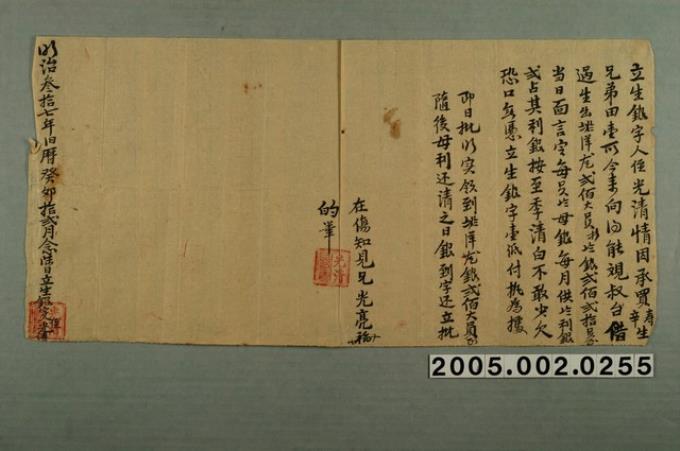 立生銀字人侄光清情因承買春生
辛
兄弟田壹所今來向阿能親叔台借
過生出
龙弍佰大員
銀弍佰弍拾員
當日面言定每員
母銀每月供
利銀
或占其利銀按至季清白不敢少欠
恐口無憑立生銀字壹派付执為據
即日批明实领到
龙銀弍佰大員
隨後母利还清之日銀到字还立批
在傷知見兄光亮
的筆
明治叁拾七年旧曆癸卯拾弍月念
日立生銀字
2005.002.0255